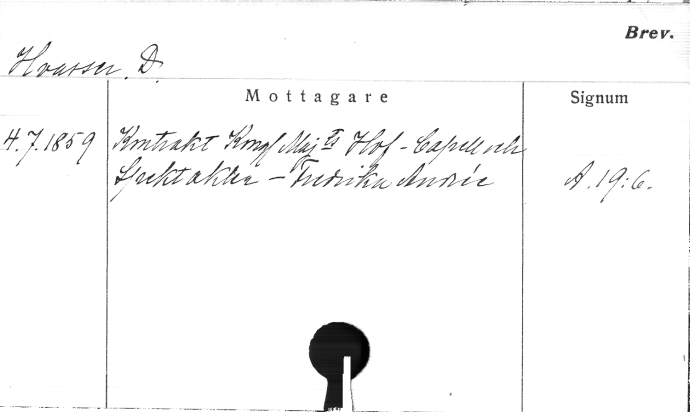 Brev.
Hvasser, D.
Mottagare
Signum
4.7.1859 Kontrakt Kongl Maj:ts Hof-Capell och
Spektakler – Fredrika Andrée A.19:6.